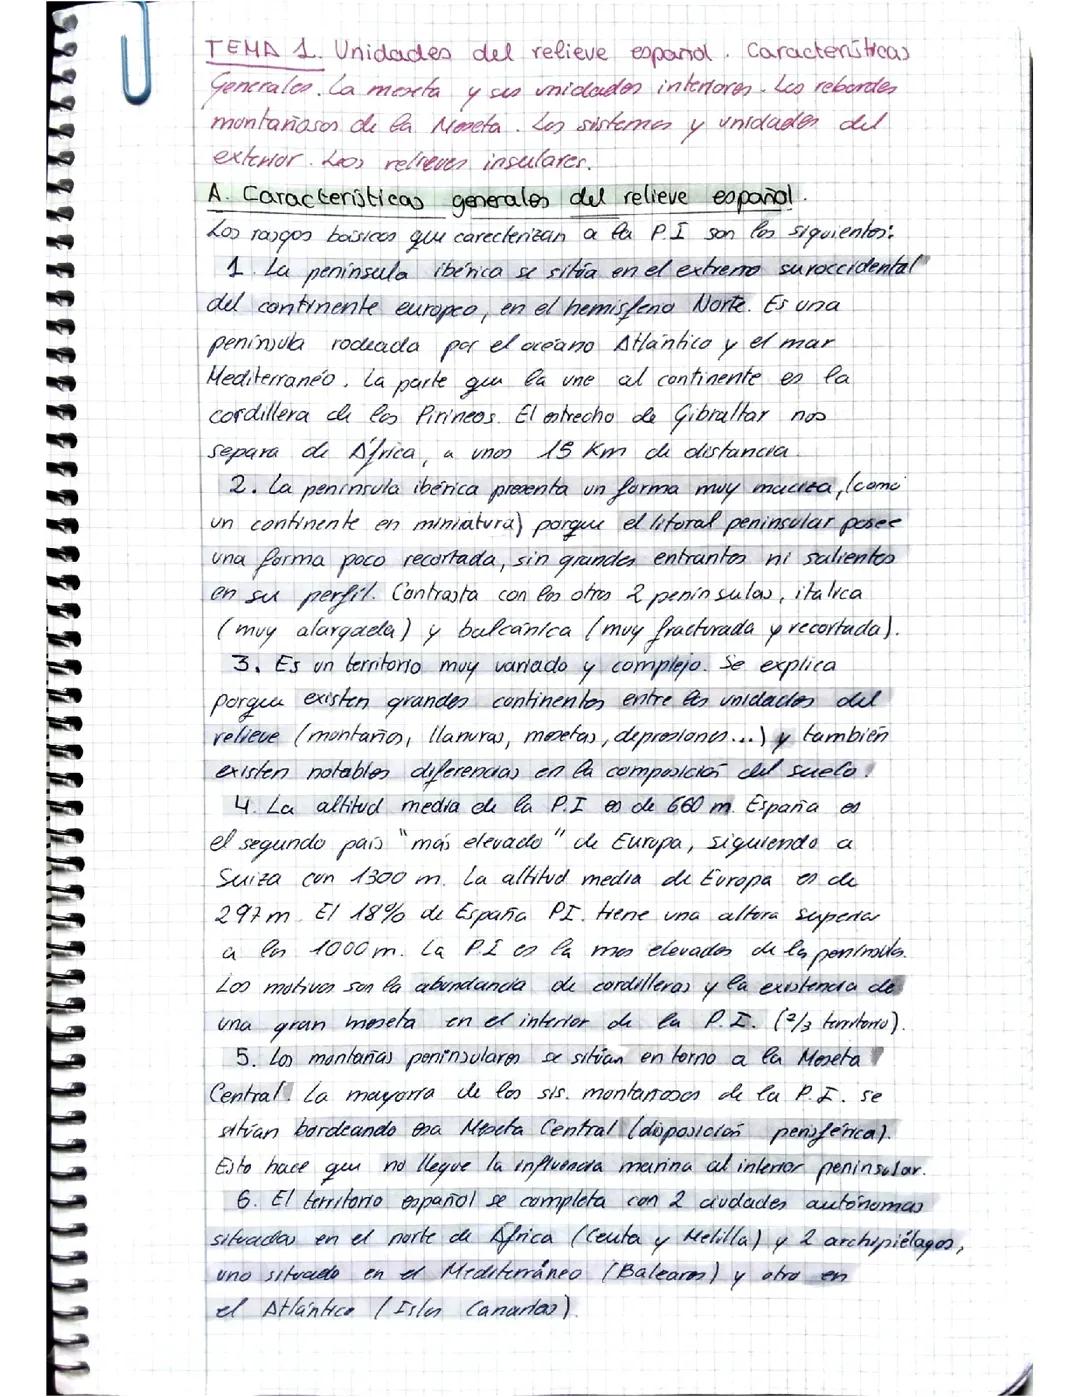 TEMA 1. Unidades del relieve español. Características
Generales. La meseta y sus unidades interiores. Los rebordes
montañosos de la Meseta. Los sistemas y unidades del
exterior. Los relieves insulares.
A. Características generales del relieve español.
Los rasgos básicos que carecterizan a la P.I son los siguientes:
1. La península ibérica se sitúa en el extremo suroccidental
del continente europeo, en el hemisferio Norte. Es una
península rodeada por el océano Atlántico y el mar
Mediterraneo. La parte que la une al continente es la
cordillera de los Pirineos. El estrecho de Gibraltar nos
separa de África, a unos 15 Km de distancia.
2. La península ibérica presenta un forma muy maciza, (como
un continente en miniatura) porque el litoral peninsular posee
una forma poco recortada, sin grandes entrantes ni salientes
en su perfil. Contrasta con los otros 2 penínsulas, itálica
(muy alargada) y balcánica (muy fracturada y recortada).
3. Es un territorio muy variado y complejo. Se explica
porque existen grandes continentes entre las unidades del
relieve (montañas, llanuras, mesetas, depresiones...) y también
existen notables diferencias en la composición del suelo.
4. La altitud media de la P.I es de 660 m. España es
el segundo país "más elevado" de Europa, siguiendo a
Suiza con 1300 m. La altitud media de Europa es de
297m. El 18% de España PI. tiene una altura superior
a los 1000 m. La P.I es la mas elevados de las penínsulas.
Los motivos son la abundancia de cordilleras y la existencia de
una gran meseta en el interior de la P.I. (2/3 territorio).
5. Los montañas peninsulares se sitúan en torno a la Meseta
Central. La mayoría de los sis. montañosos de la P.I. se
sitúan bordeando esa Meseta Central (disposición periférica).
Esto hace que no llegue la influencia marina al interior peninsular.
6. El territorio español se completa con 2 ciudades autónomas
situadas en el norte de África (Ceuta y Melilla) y 2 archipiélagos,
uno situado en el Mediterráneo (Baleares) y otro en
el Atlántico (Islas Canarias).